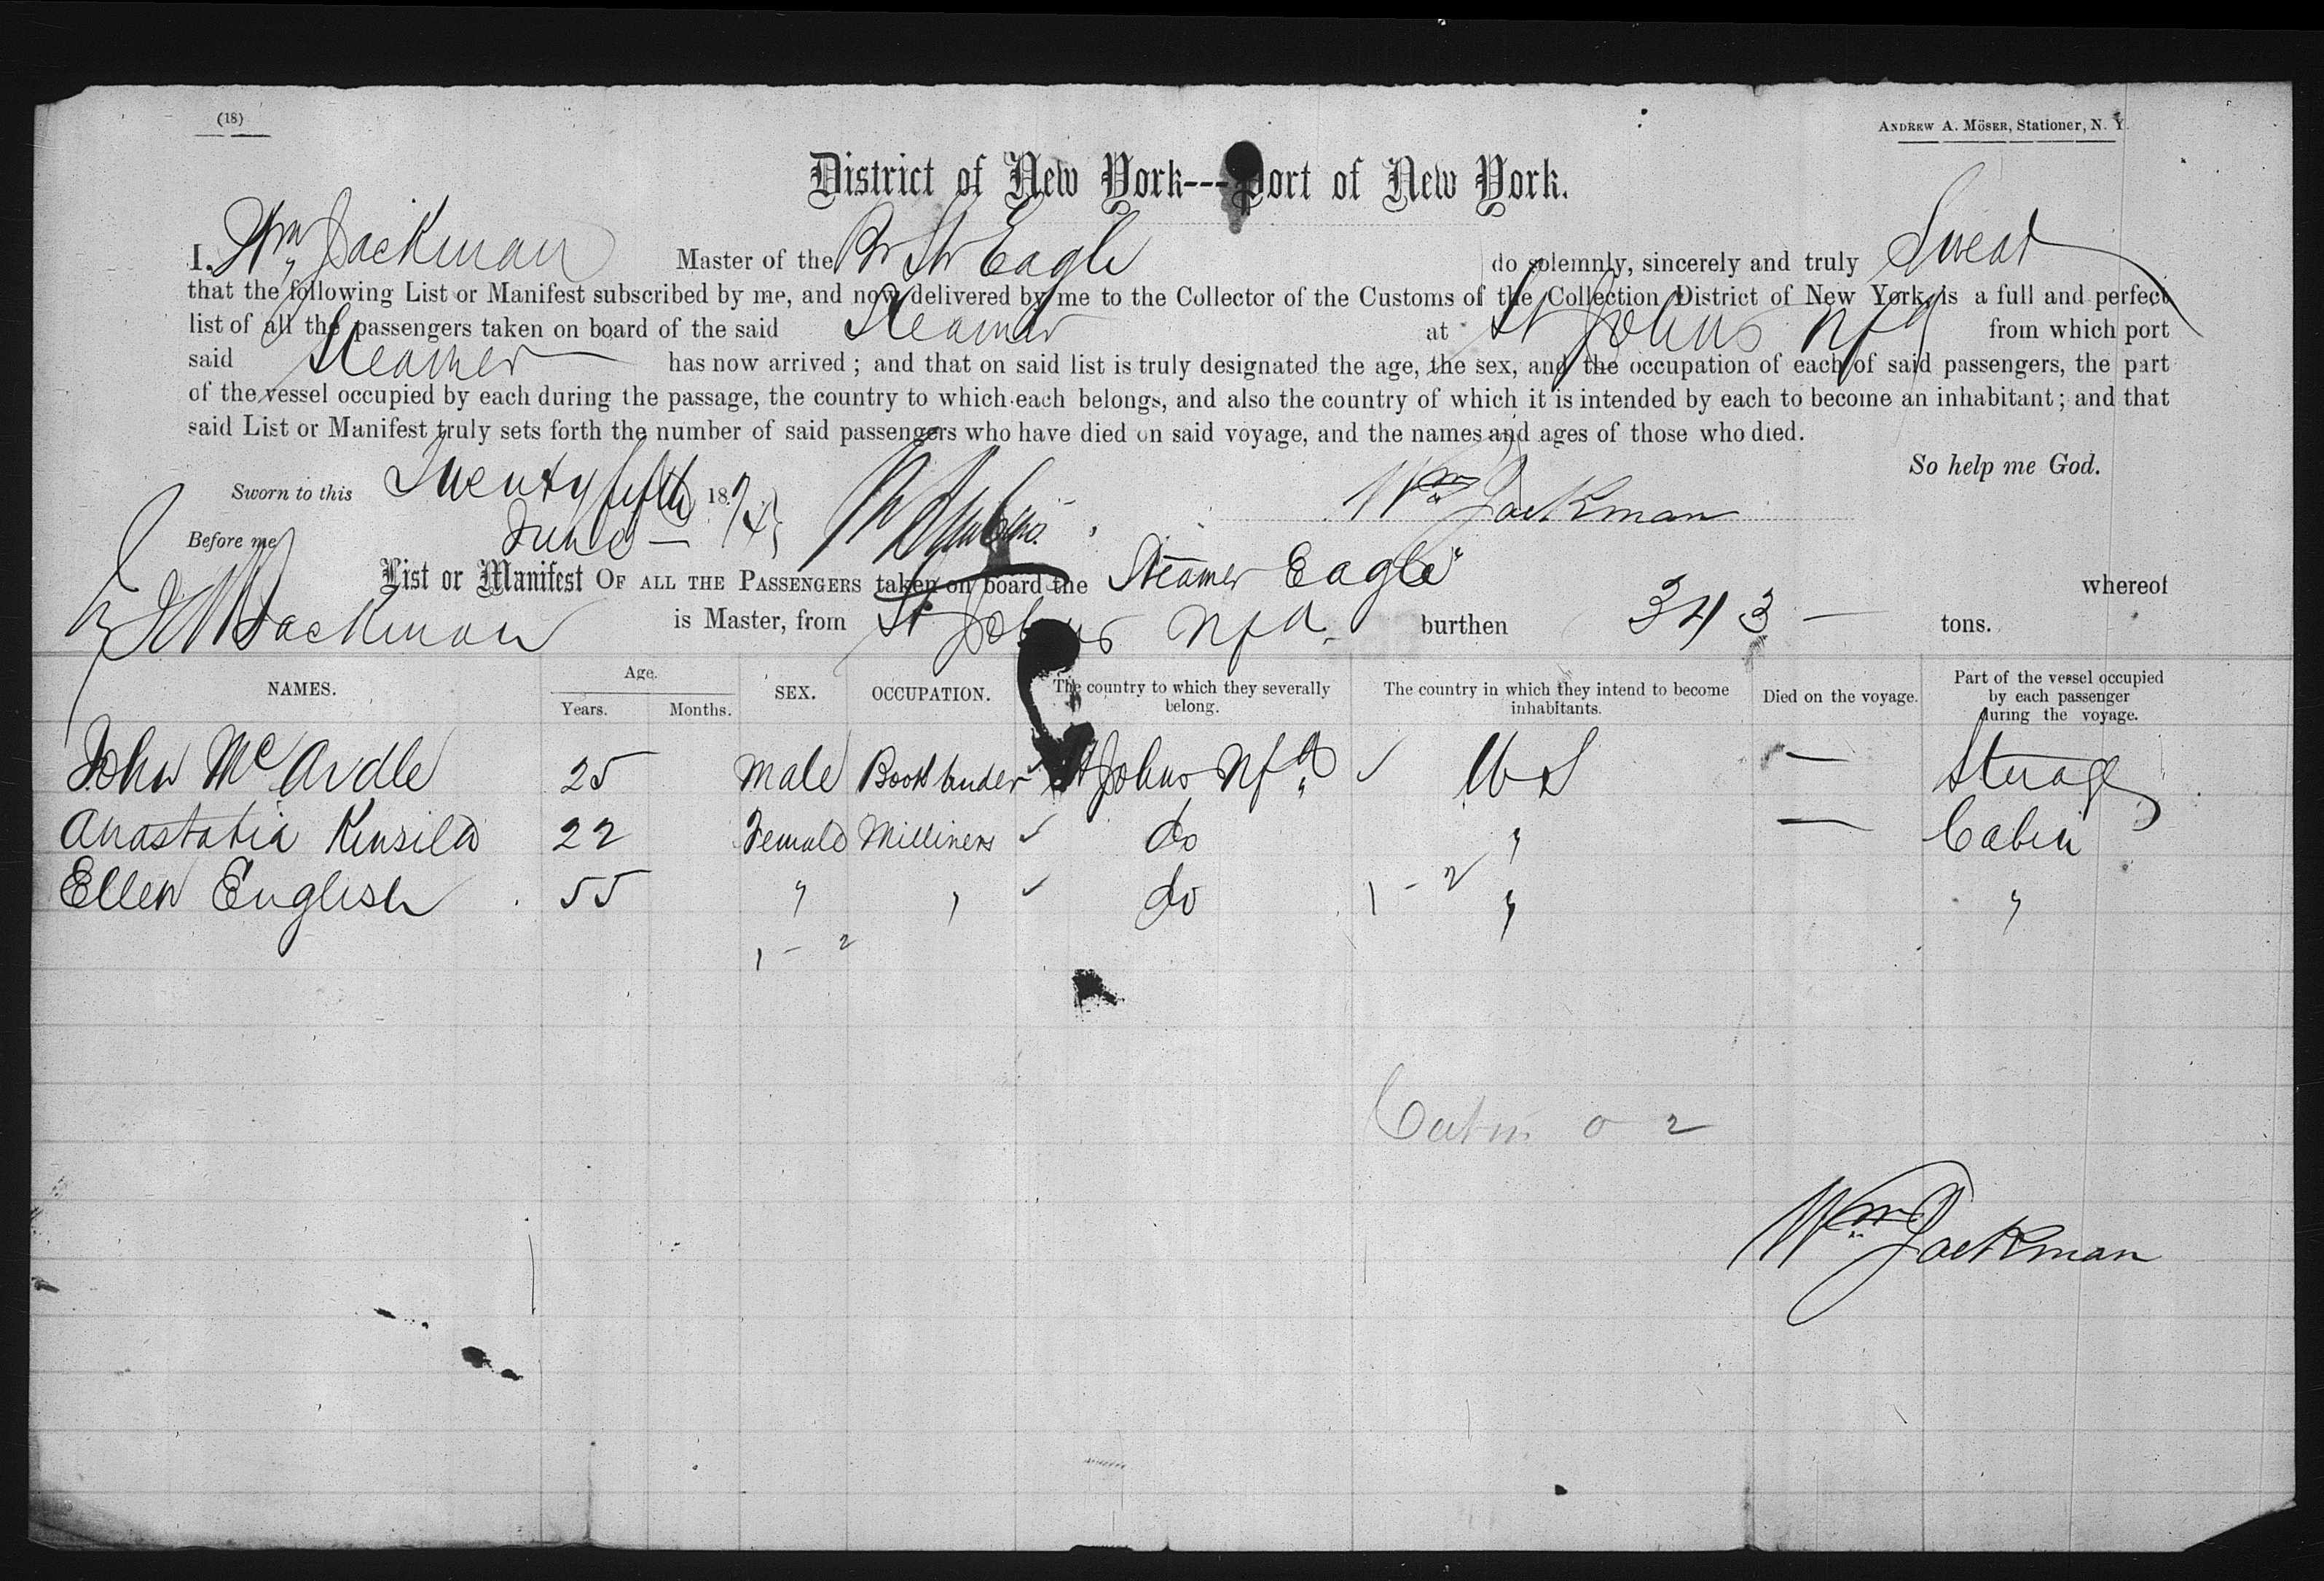 (18)
ANDREW A. MÖSER, Stationer, N. Y.
District of New York---Port of New York.
I, Wm Jackman Master of the Br Str Eagle do solemnly, sincerely and truly Swear
that the following List or Manifest subscribed by me, and now delivered by me to the Collector of the Customs of the Collection District of New York, is a full and perfect
list of all the passengers taken on board of the said Steamer at St Johns Nfd from which port
said Steamer has now arrived; and that on said list is truly designated the age, the sex, and the occupation of each of said passengers, the part
of the vessel occupied by each during the passage, the country to which each belongs, and also the country of which it is intended by each to become an inhabitant; and that
said List or Manifest truly sets forth the number of said passengers who have died on said voyage, and the names and ages of those who died.
So help me God.
Sworn to this Twenty fifth 187
June
Wm Jackman
Before me
List or Manifest OF ALL THE PASSENGERS taken on board the Steamer Eagle whereof
Jackman is Master, from St Johns Nfd burthen 343 — tons.
NAMES. Age. Years. Months. SEX. OCCUPATION. The country to which they severally belong. The country in which they intend to become inhabitants. Died on the voyage. Part of the vessel occupied by each passenger during the voyage.
John McArdle 25 Male Bookbinder ✓ St Johns Nfd ✓ U S — Sterage
Anastatia Kinsila 22 Female Milliners ✓ do " — Cabin
Ellen English 55 " " ✓ do 1 - 2 " "
1 - 2
Cabin 0 2
Wm Jackman